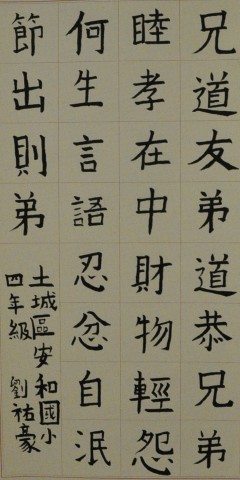 兄道友弟道恭兄弟
睦孝在中財物輕怨
何生言語忍忿自泯
節出則弟
土城區安和國小
四年級 劉祐豪